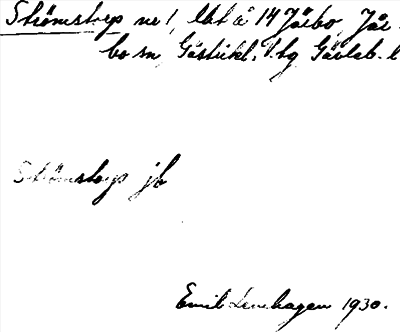 Strömstorp nr 1, lht å 14 Järbo, Jär-
bo sn, Gästrikl. V. tg Gävleb. l
Strömstorps jb
Emil Lenhagen 1930.